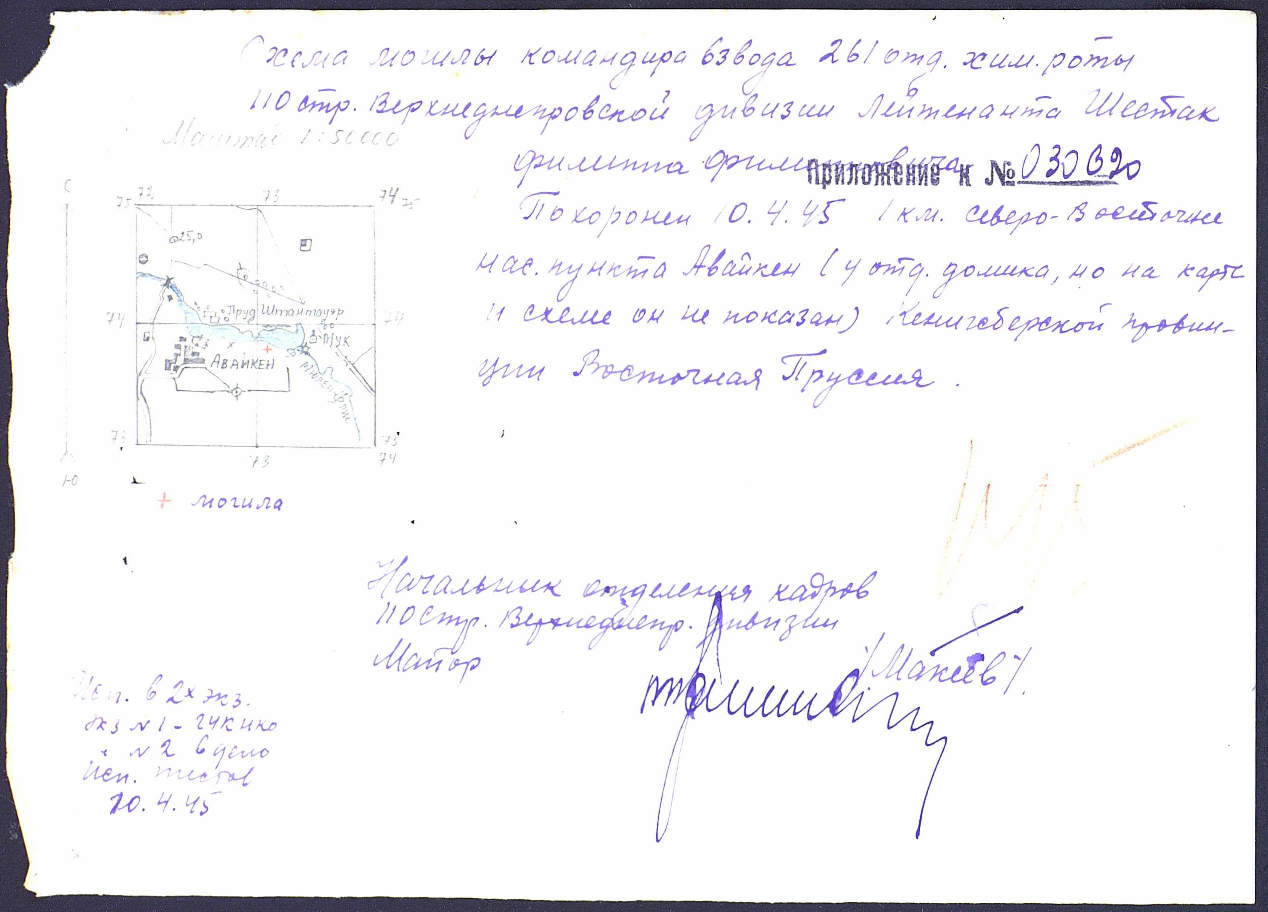 Схема могилы командира взвода 261 отд. хим. роты
110 стр. Верхнеднепровской дивизии Лейтенанта Шестак
Филиппа Филипповича
Приложение к №
Масштаб 1:50000
Похоронен 10.4.45 1 км. северо-восточне
нас. пункта Авайкен (у отд. домика, но на карте
и схеме он не показан) Кенигсберской провин-
ции Восточная Пруссия.
С
75 72 73 74 75
25,0
Пруд Штантауэр
74 74
АВАЙКЕН
73 73
73 74
Ю
+ могила
Начальник отделения кадров
110 стр. Верхнеднепр. дивизии
Майор /Макеев/.
Исп. в 2х экз.
экз №1 - ГУК НКО
№2 в дело
Исп.
10.4.45